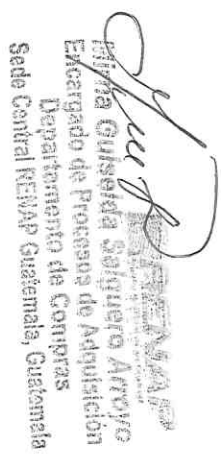 RENAP
Guiselda Salguero Arroyo
Encargado de Procesos de Adquisición
Departamento de Compras
Sede Central RENAP Guatemala, Guatemala